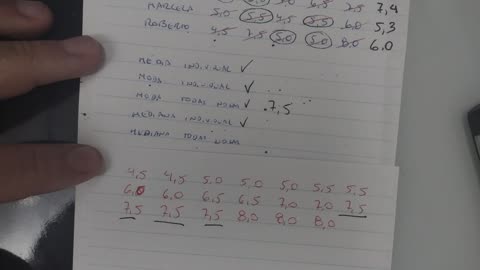 MARCELA 5,0 5,5 4,5 5,5 6,0 5,3
ROBERTO 4,5 7,5 5,0 5,0 8,0 6,0
MEDIA INDIVIDUAL ✓
MODA INDIVIDUAL ✓
MODA TODAS NOTAS ✓ .7,5
MEDIANA INDIVIDUAL ✓
MEDIANA TODAS NOTAS
4,5 4,5 5,0 5,0 5,0 5,5 5,5
6,0 6,0 6,5 6,5 7,0 7,0 7,5
7,5 7,5 7,5 8,0 8,0 8,0